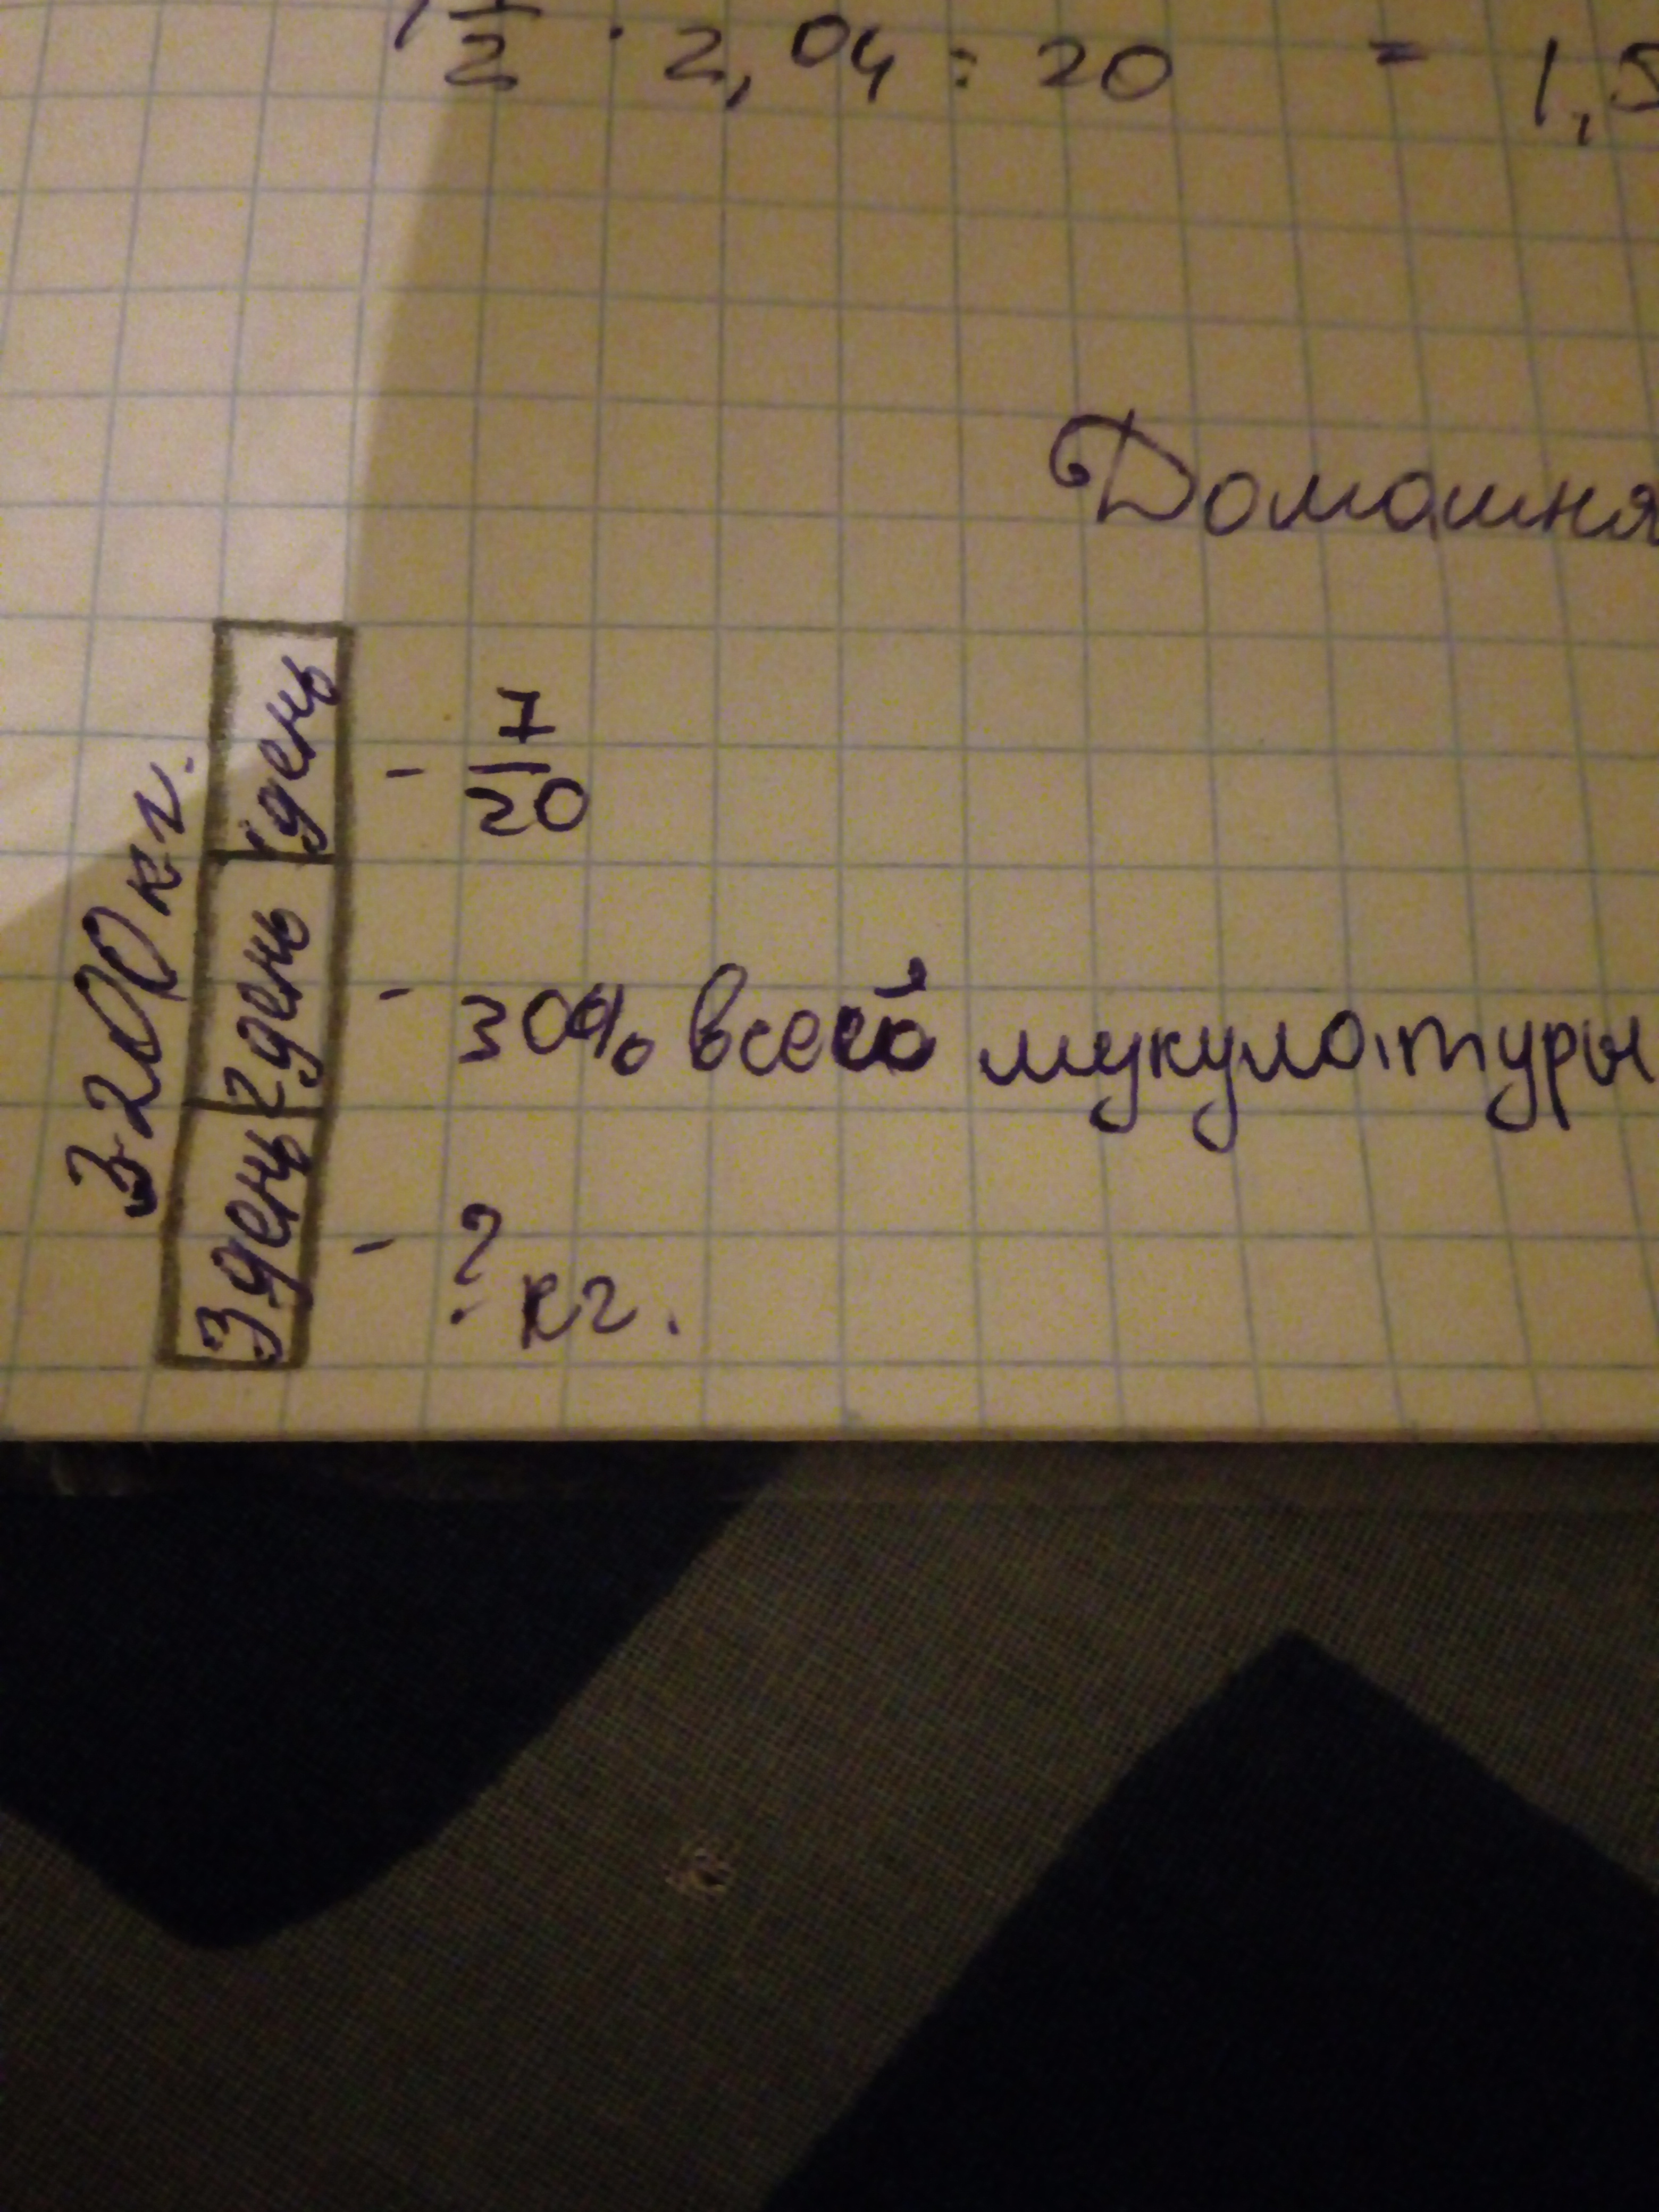 1 1/2 · 2,04 : 20 = 1,5
Домашня
3200 кг.
1 день - 7/20
2 день - 30% всей мукулатуры
3 день - ? кг.